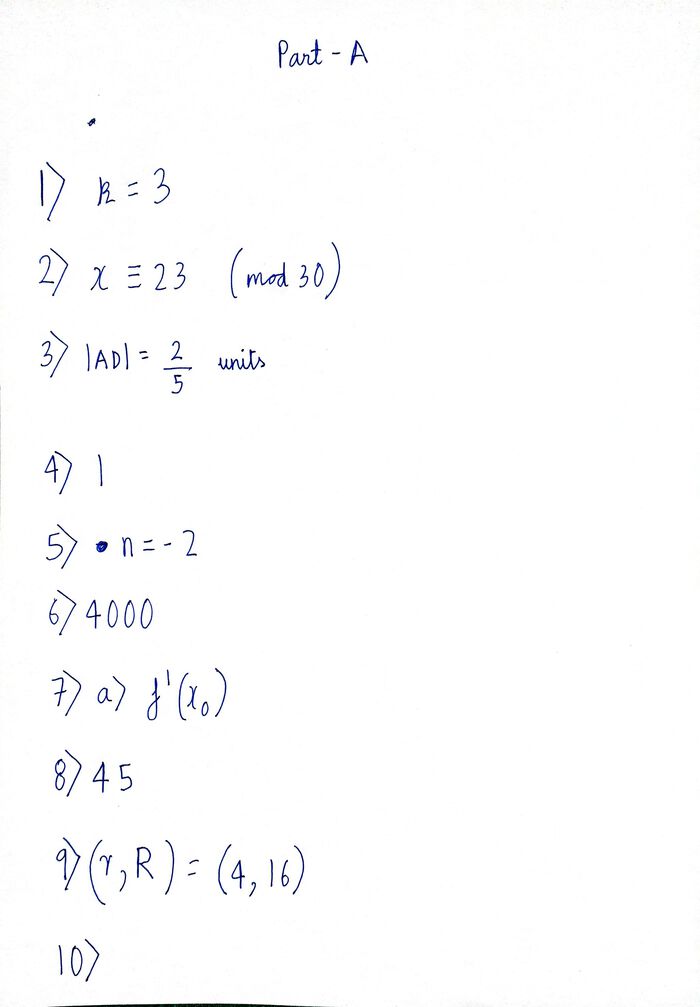 Part - A
1) k = 3
2) x ≡ 23 (mod 30)
3) |AD| = 2/5 units
4) 1
5) n = - 2
6) 4000
7) a) f'(x₀)
8) 45
9) (r, R) = (4, 16)
10)